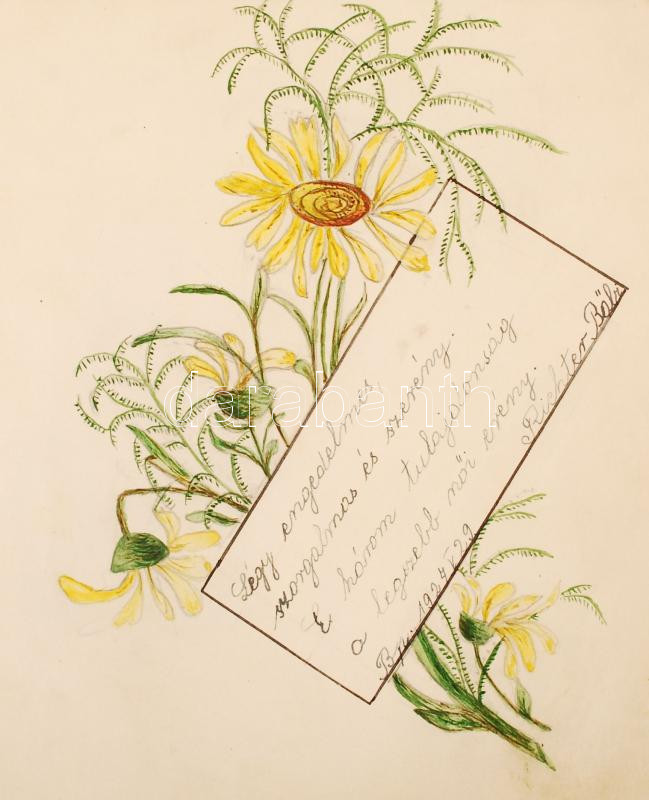 Légy engedelmes,
szorgalmas és szerény.
E három tulajdonság
a legszebb női erény.
Richter Böbi
Bp. 1924 V. 29
darabanth